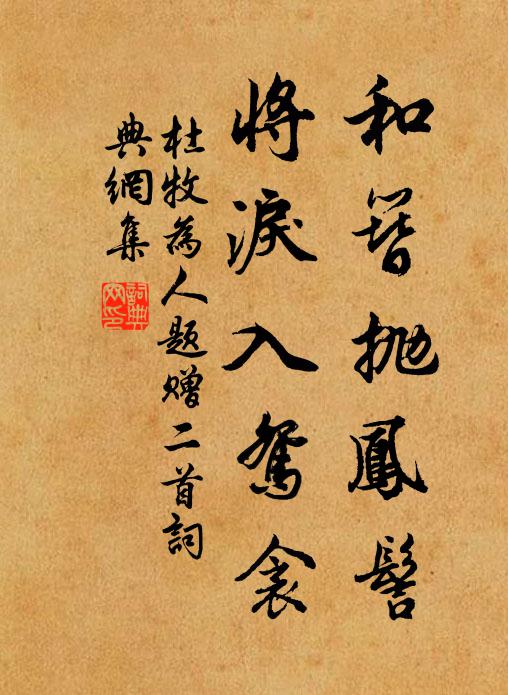 和簪拋鳳髻
將淚入鴛衾
杜牧為人題贈二首詞
典網集
詞典網印